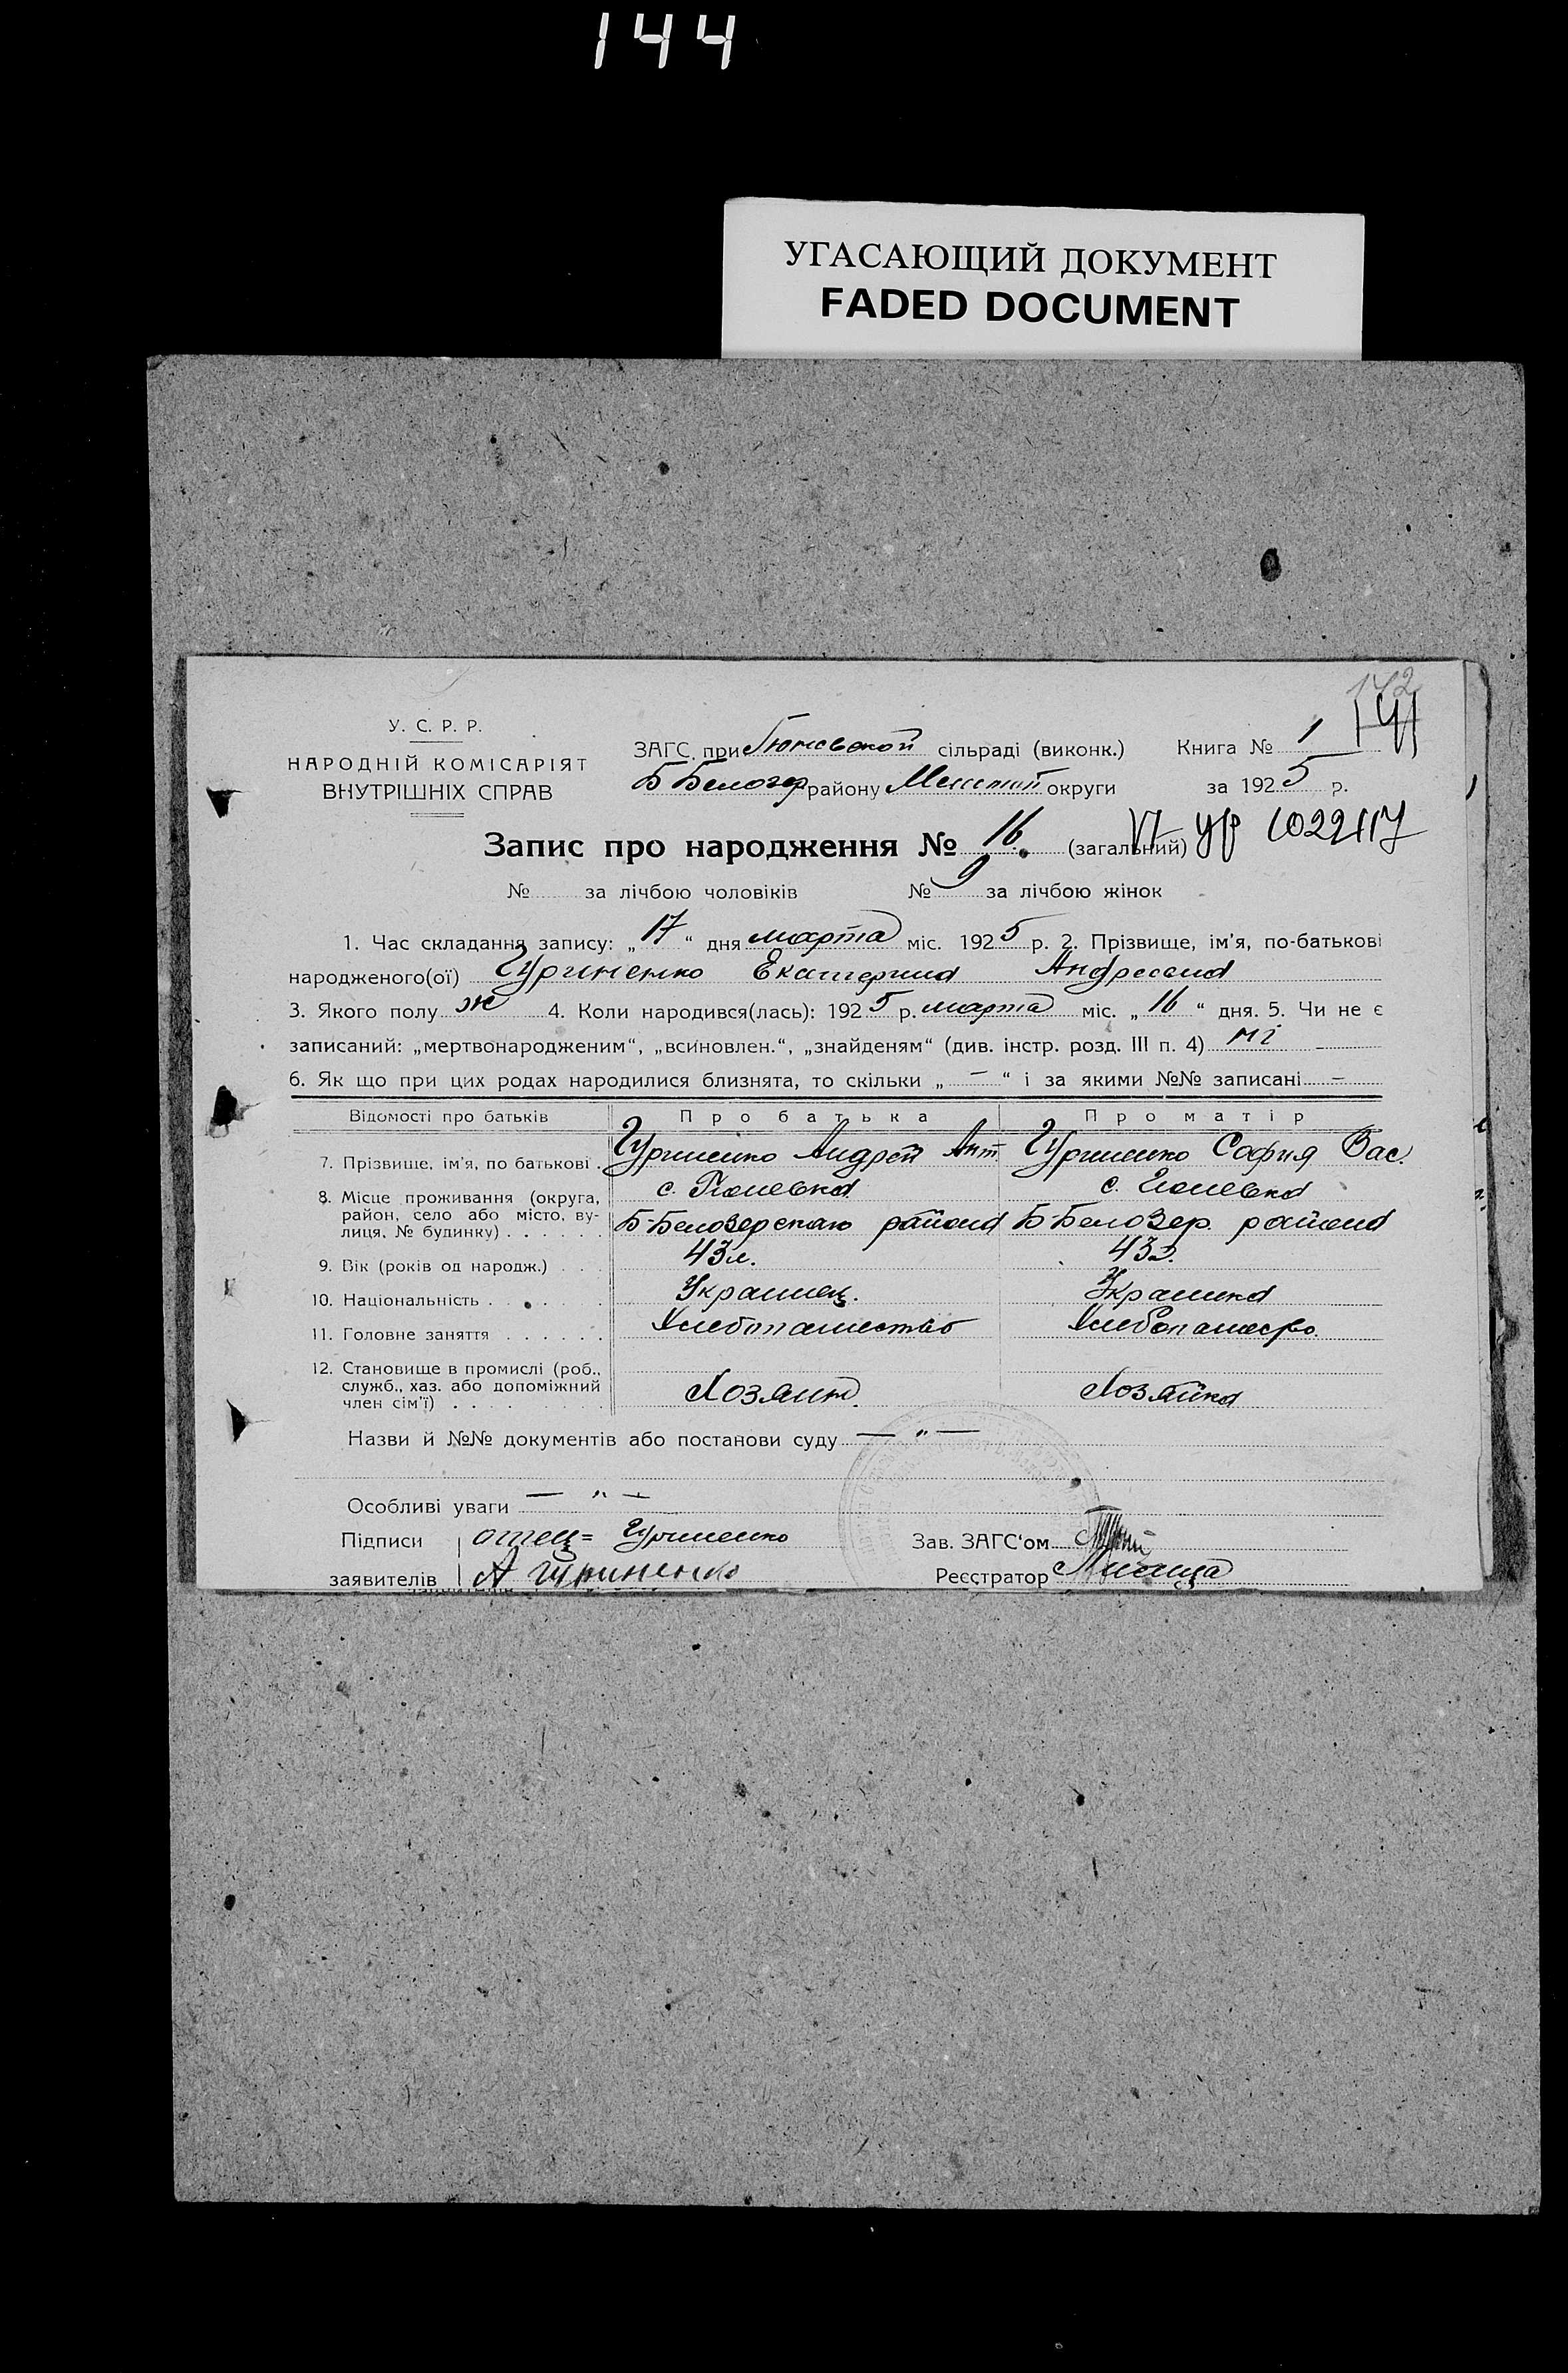 144
УГАСАЮЩИЙ ДОКУМЕНТ
FADED DOCUMENT
142
141
У. С. Р. Р.
НАРОДНІЙ КОМІСАРІЯТ
ВНУТРІШНІХ СПРАВ
ЗАГС при Гюневской сільраді (виконк.) Книга № 1
Б Белозер району Мелитоп округи за 1925 р.
Запис про народження № 16 (загальний) 1022117
№ за лічбою чоловіків № 9 за лічбою жінок
1. Час складання запису: „17“ дня марта міс. 1925 р. 2. Прізвище, ім'я, по-батькові
народженого(ої) Гуриненко Екатерина Андреевна
3. Якого полу ж 4. Коли народився(лась): 1925 р. марта міс. „16“ дня. 5. Чи не є
записаний: „мертвонародженим“, „всиновлен.“, „знайденям“ (див. інстр. розд. III п. 4) —
6. Як що при цих родах народилися близнята, то скільки „—“ і за якими №№ записані —
Відомості про батьків Про батька Про матір
7. Прізвище, ім'я, по батькові . Гуриненко Андрей Ант. Гуриненко София Вас.
8. Місце проживання (округа, район, село або місто, вулиця, № будинку) . . . . . . с. Гюневка Б-Белозерскаго района с. Гюневка Б-Белозер. района
9. Вік (років од народж.) . . . 43 л. 43 г.
10. Національність . . . . . . Украинец. Украинка
11. Головне заняття . . . . . . Хлебопашество Хлебопашество.
12. Становище в промислі (роб., служб., хаз. або допоміжний член сім'ї) . . . Хозяин. Хозяйка
Назви й №№ документів або постанови суду — „ —
Особливі уваги — „ —
Підписи отец = Гуриненко Зав. ЗАГС'ом
заявителів А Гуриненко Реєстратор